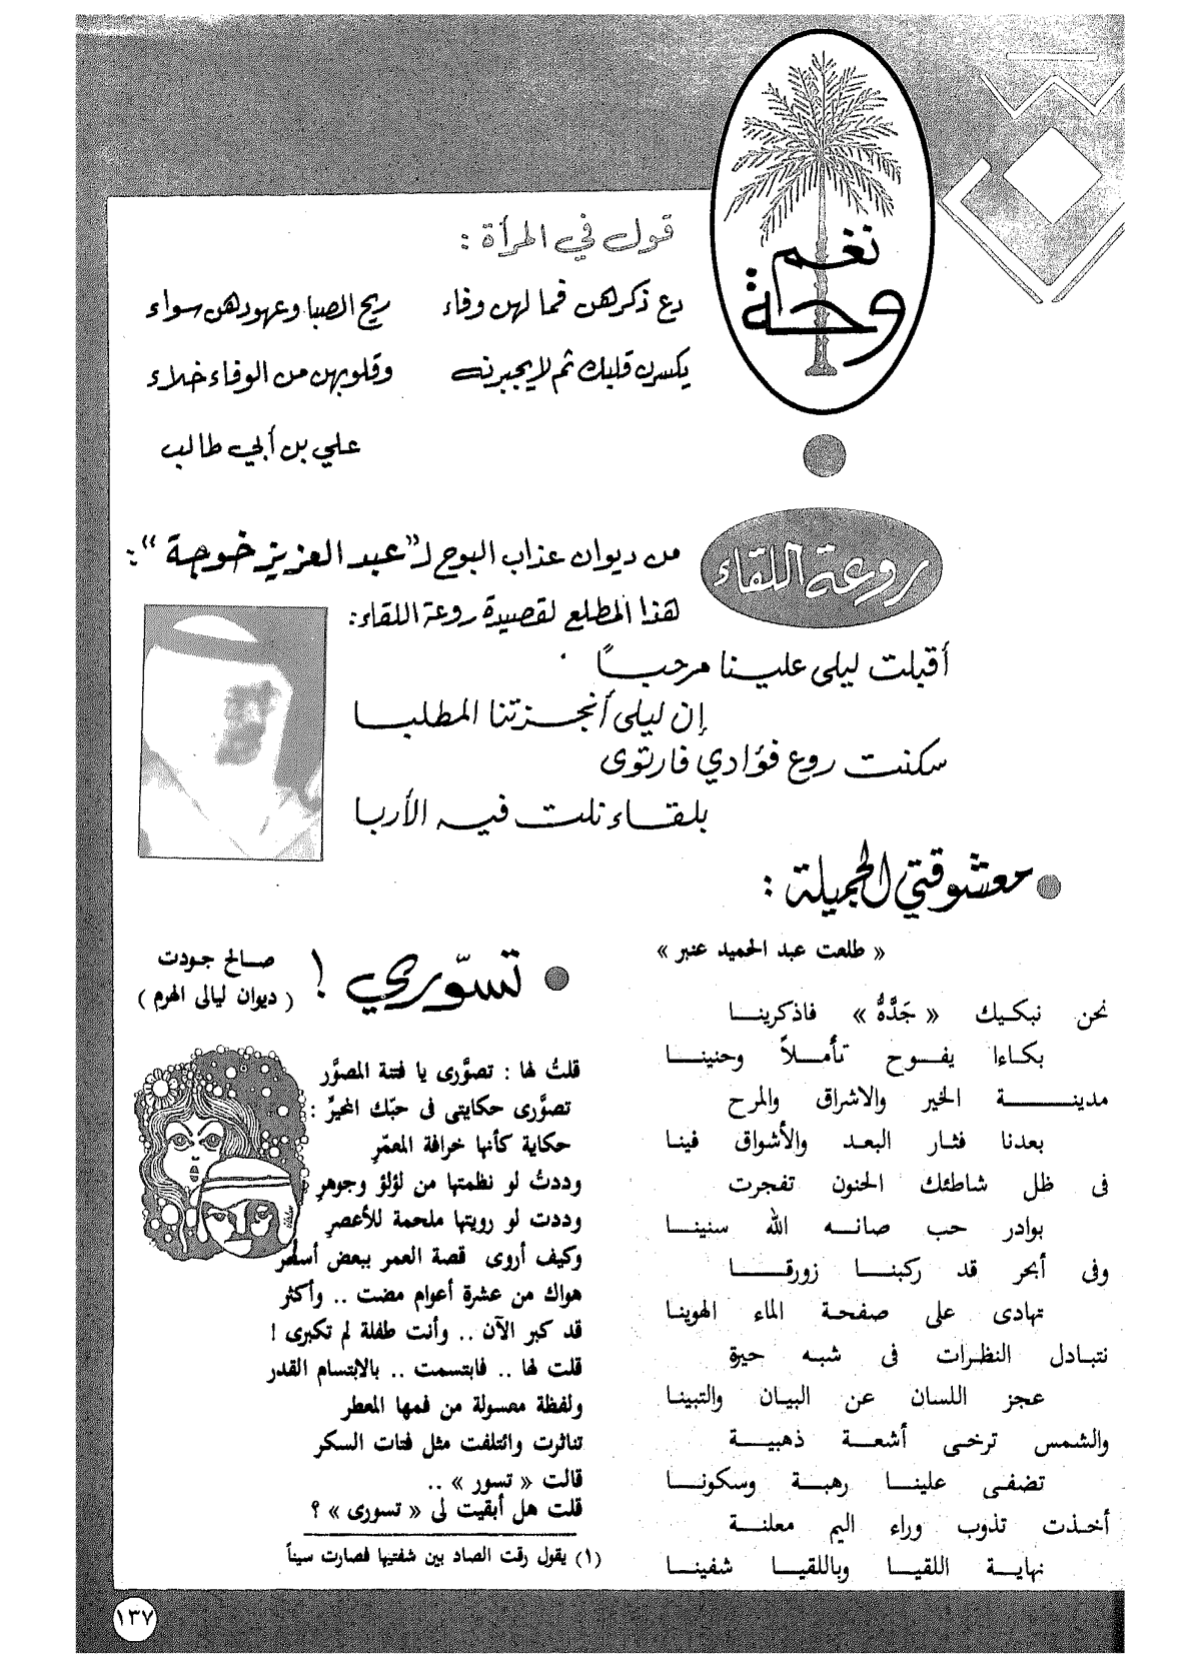 نغم
وحة
قول في المرأة :
دع ذكرهن فما لهن وفاء ريح الصبا وعهودهن سواء
يكسرن قلبك ثم لا يجبرنه وقلوبهن من الوفاء خلاء
علي بن أبي طالب
روعة اللقاء
من ديوان عذاب البوح لـ "عبد العزيز خوجة" :
هذا المطلع لقصيدة روعة اللقاء:
أقبلت ليلى علينا مرحباً
إن ليلى أنجزتنا المطلبا
سكنت روع فؤادي فارتوى
بلقاء نلت فيه الأربا
معشوقتي الجميلة :
« طلعت عبد الحميد عنبر »
نحن نبكيك « جَدَّةُ » فاذكرينا
بكاءا يفوح تأملاً وحنينا
مدينة الخير والاشراق والمرح
بعدنا فثار البعد والأشواق فينا
فى ظل شاطئك الحنون تفجرت
بوادر حب صانه الله سنينا
وفى أبحر قد ركبنا زورقا
تهادى على صفحة الماء الهوينا
نتبادل النظرات فى شبه حيرة
عجز اللسان عن البيان والتبينا
والشمس ترخى أشعة ذهبية
تضفى علينا رهبة وسكونا
أخذت تذوب وراء اليم معلنة
نهاية اللقيا وباللقيا شفينا
تسوّري !
صالح جودت
( ديوان ليالى الهرم )
قلتُ لها : تصوَّرى يا فتنة المصوَّر
تصوَّرى حكايتى فى حبّك المحيرِّ :
حكاية كأنها خرافة المعمّرِ
وددتُ لو نظمتها من لؤلؤ وجوهرِ
وددت لو رويتها ملحمة للأعصرِ
وكيف أروى قصة العمر ببعض أسطر
هواك من عشرة أعوام مضت .. وأكثر
قد كبر الآن .. وأنت طفلة لم تكبرى !
قلت لها .. فابتسمت .. بالابتسام القدر
ولفظة معسولة من فمها المعطر
تناثرت وائتلفت مثل فتات السكر
قالت « تسور » ..
قلت هل أبقيت لى « تسورى » ؟
(١) يقول رقت الصاد بين شفتيها فصارت سيناً
١٣٧